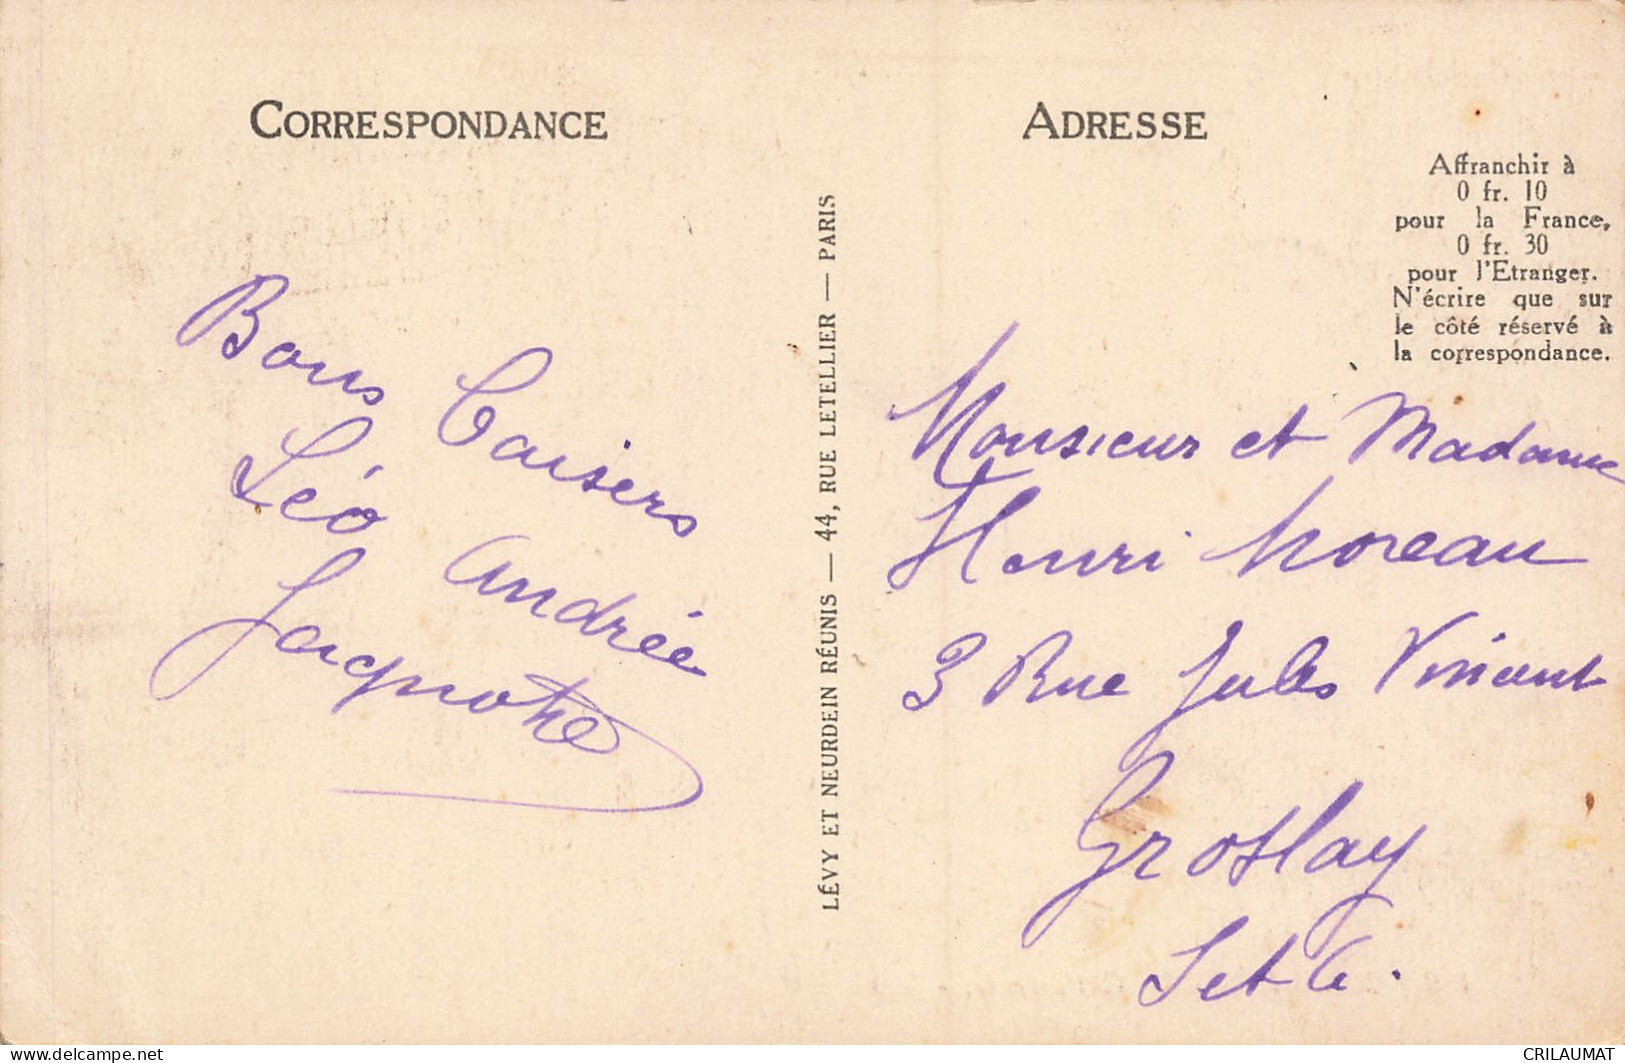 CORRESPONDANCE
Bons Baisers
Léo Andrée
Jacquotte
LÉVY ET NEURDEIN RÉUNIS — 44, RUE LETELLIER — PARIS
ADRESSE
Affranchir à
0 fr. 10
pour la France,
0 fr. 30
pour l'Etranger.
N'écrire que sur
le côté réservé à
la correspondance.
Monsieur et Madame
Henri Moreau
3 Rue Jules Vincent
Groslay
S et O.
www.delcampe.net
CRILAUMAT